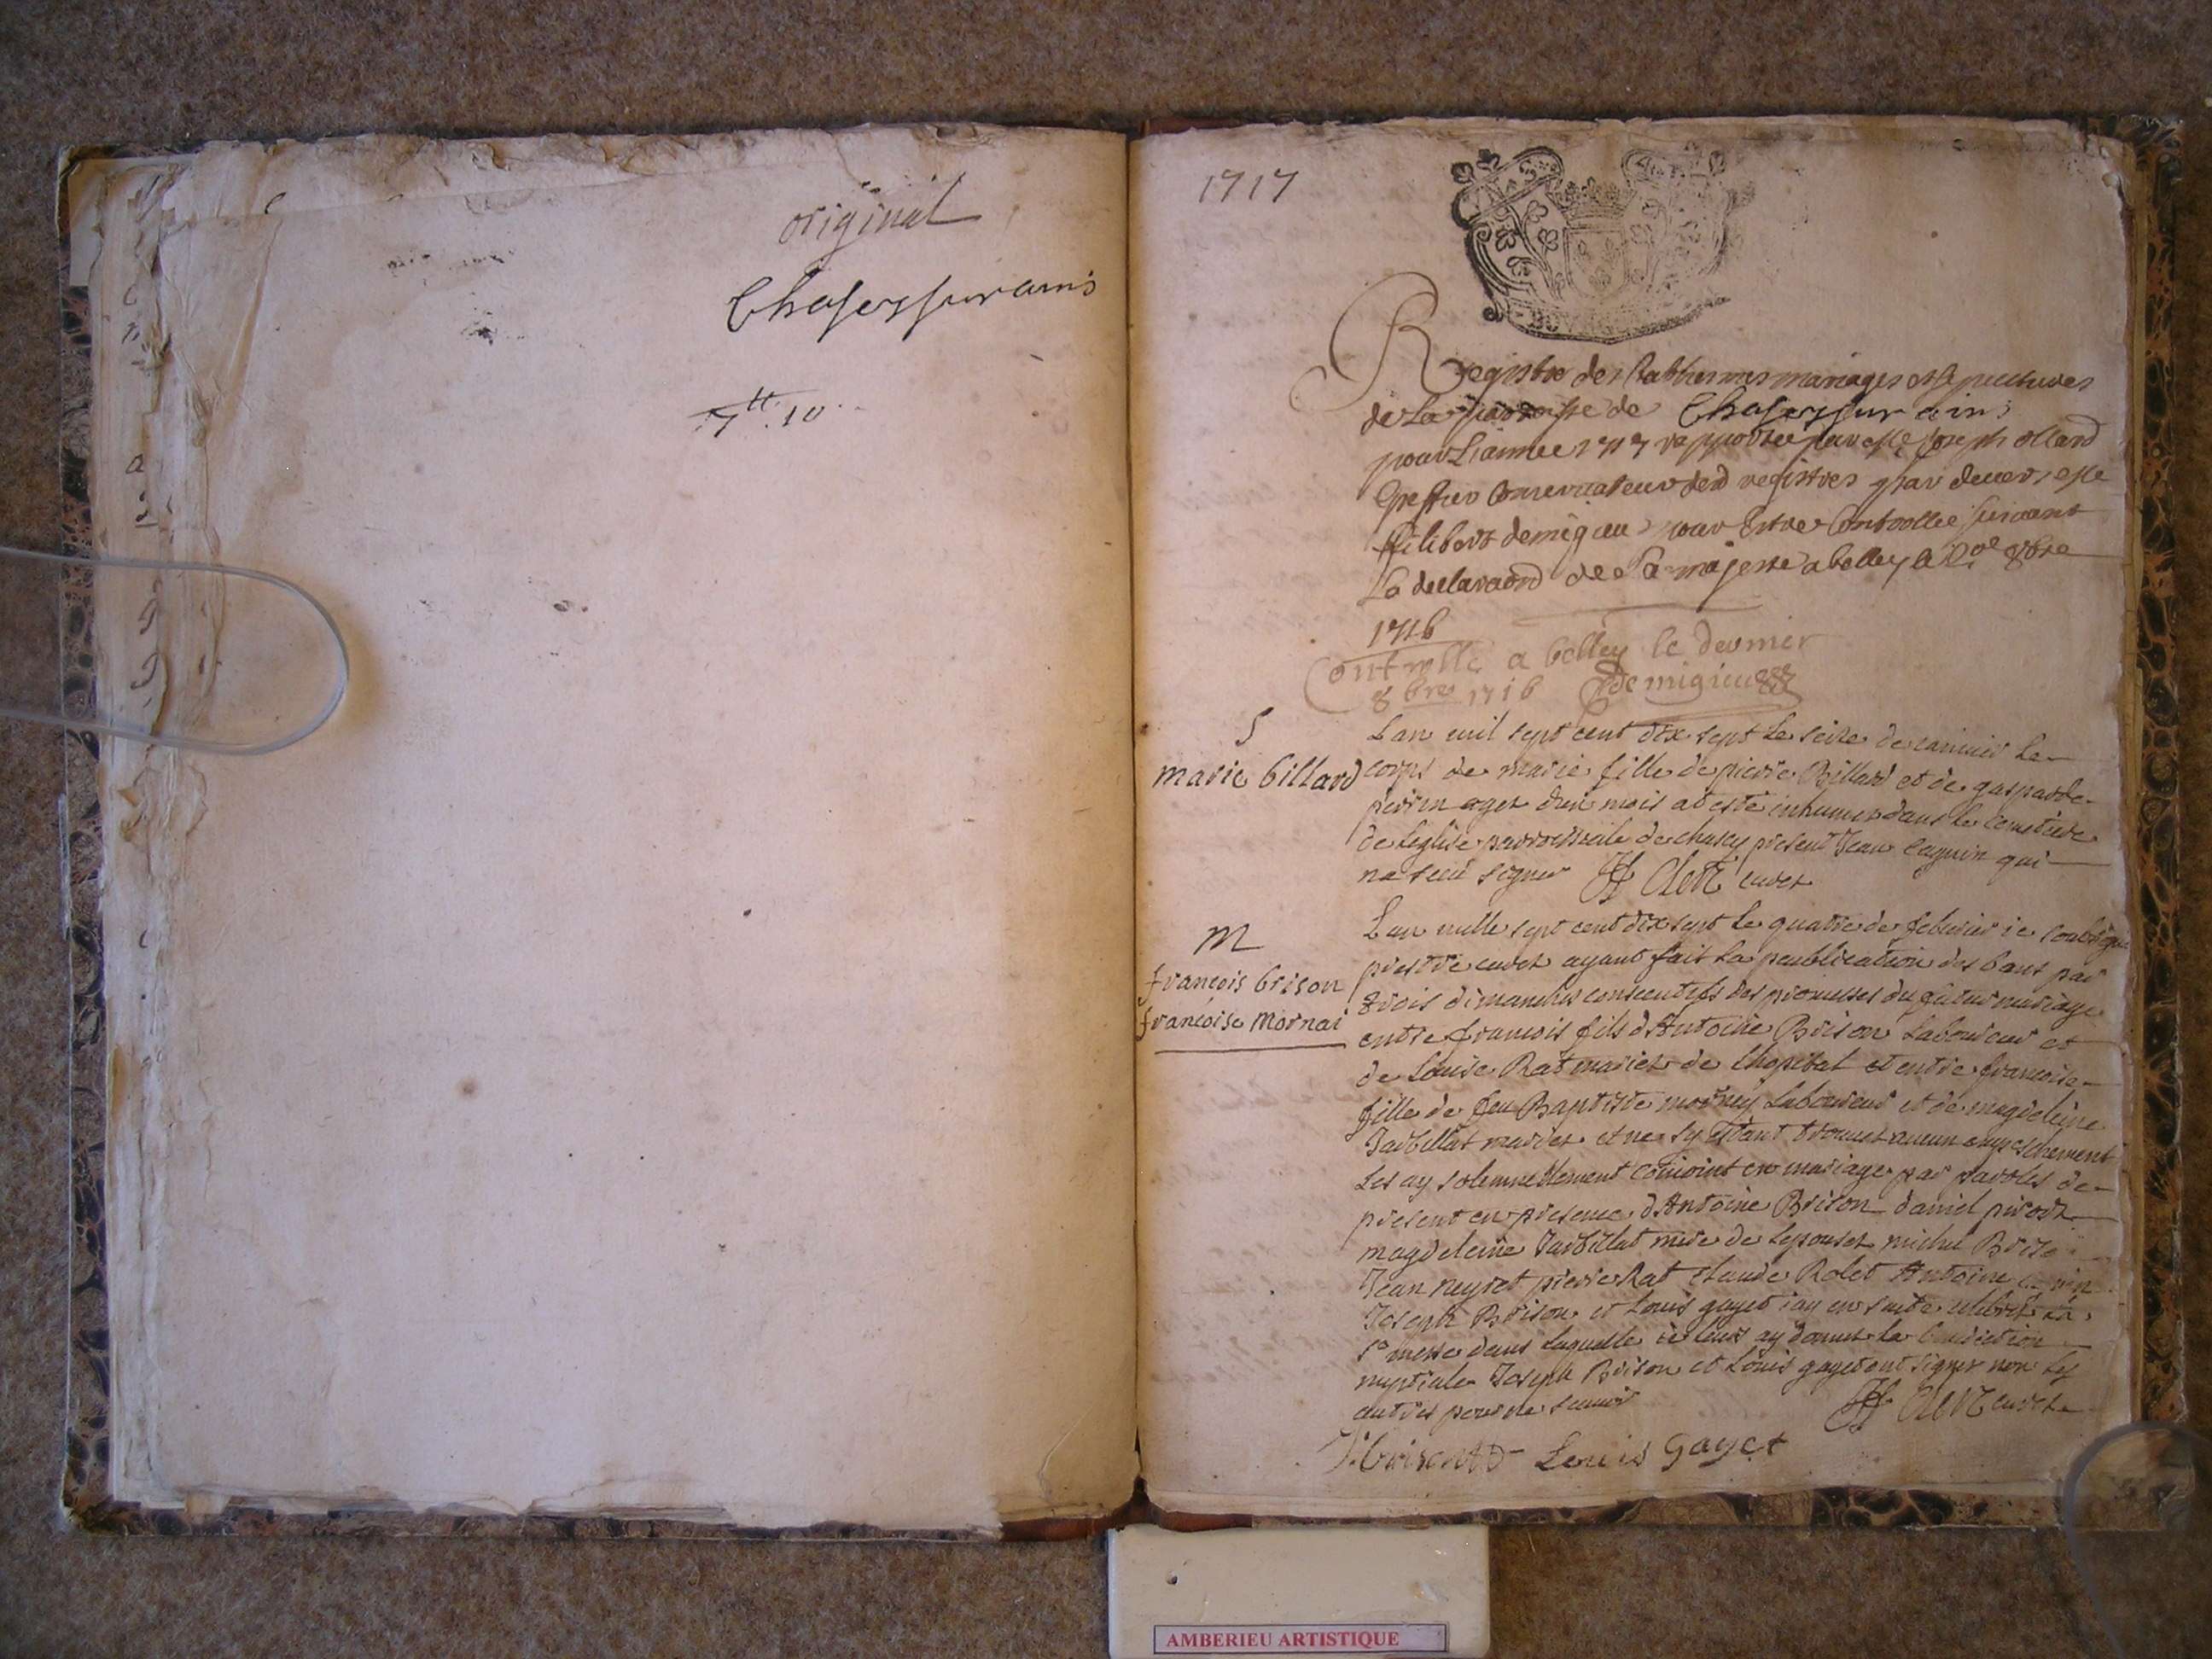 original
Chaseyssurains
7tt. 10
1717
Registre des Babtesmes mariages et sepultures
de la parroisse de Chaseyssur ains
pour L'année 1717 rapportée par Me Joseph ollard
Greffier Conservateur desd registres par devers Me
filibert demigieu pour Estre Controllee suivant
La declaraōn de Sa majesté a belley le 8bre
1716
Controllé a belley le dernier
8bres 1716 demigieu
S
marie billard
Lan mil sept cent dix sept le seize de ianuier le
corps de marie fille de pierre Billard et de gasparde
perrin aget d'un mois at esté inhumer dans le cemetiere
de leglise parroissiale de chasey present Jean caguin qui
na sceu signer curet
M
françois brison
françoise Mornai
Lan mille sept cent dix sept le quatre de feburier ie soubsigné
prestre curet ayant fait la peublication des bans par
trois dimanches consecutifs des promesses du futur mariage
entre francois fils d'Antoine Brison Laboureur et
de Louise Rat mariet de Lhopital et entre francoise
fille de feu Baptiste morney Laboureur et de magdeleine
Jarbillat mariet et ne sy estant trouuet aucun empeschement
Les ay solemnellement conioint en mariage par paroles de
present en presence d'Antoine Brison daniel pirod
magdeleine Jarbillat mere de lepouset michel Briso
Jean neyret pierre Rat claude Rolet Antoine
Joseph Brison et Louis gayet iay en suite celebret la
Ste messe dans laquelle ie leurs ay donnet la benediction
nuptiale Joseph Brison et Louis gayet ont signer non les
autres pour ne scauoir curet
J. brison Louis gayet
AMBERIEU ARTISTIQUE